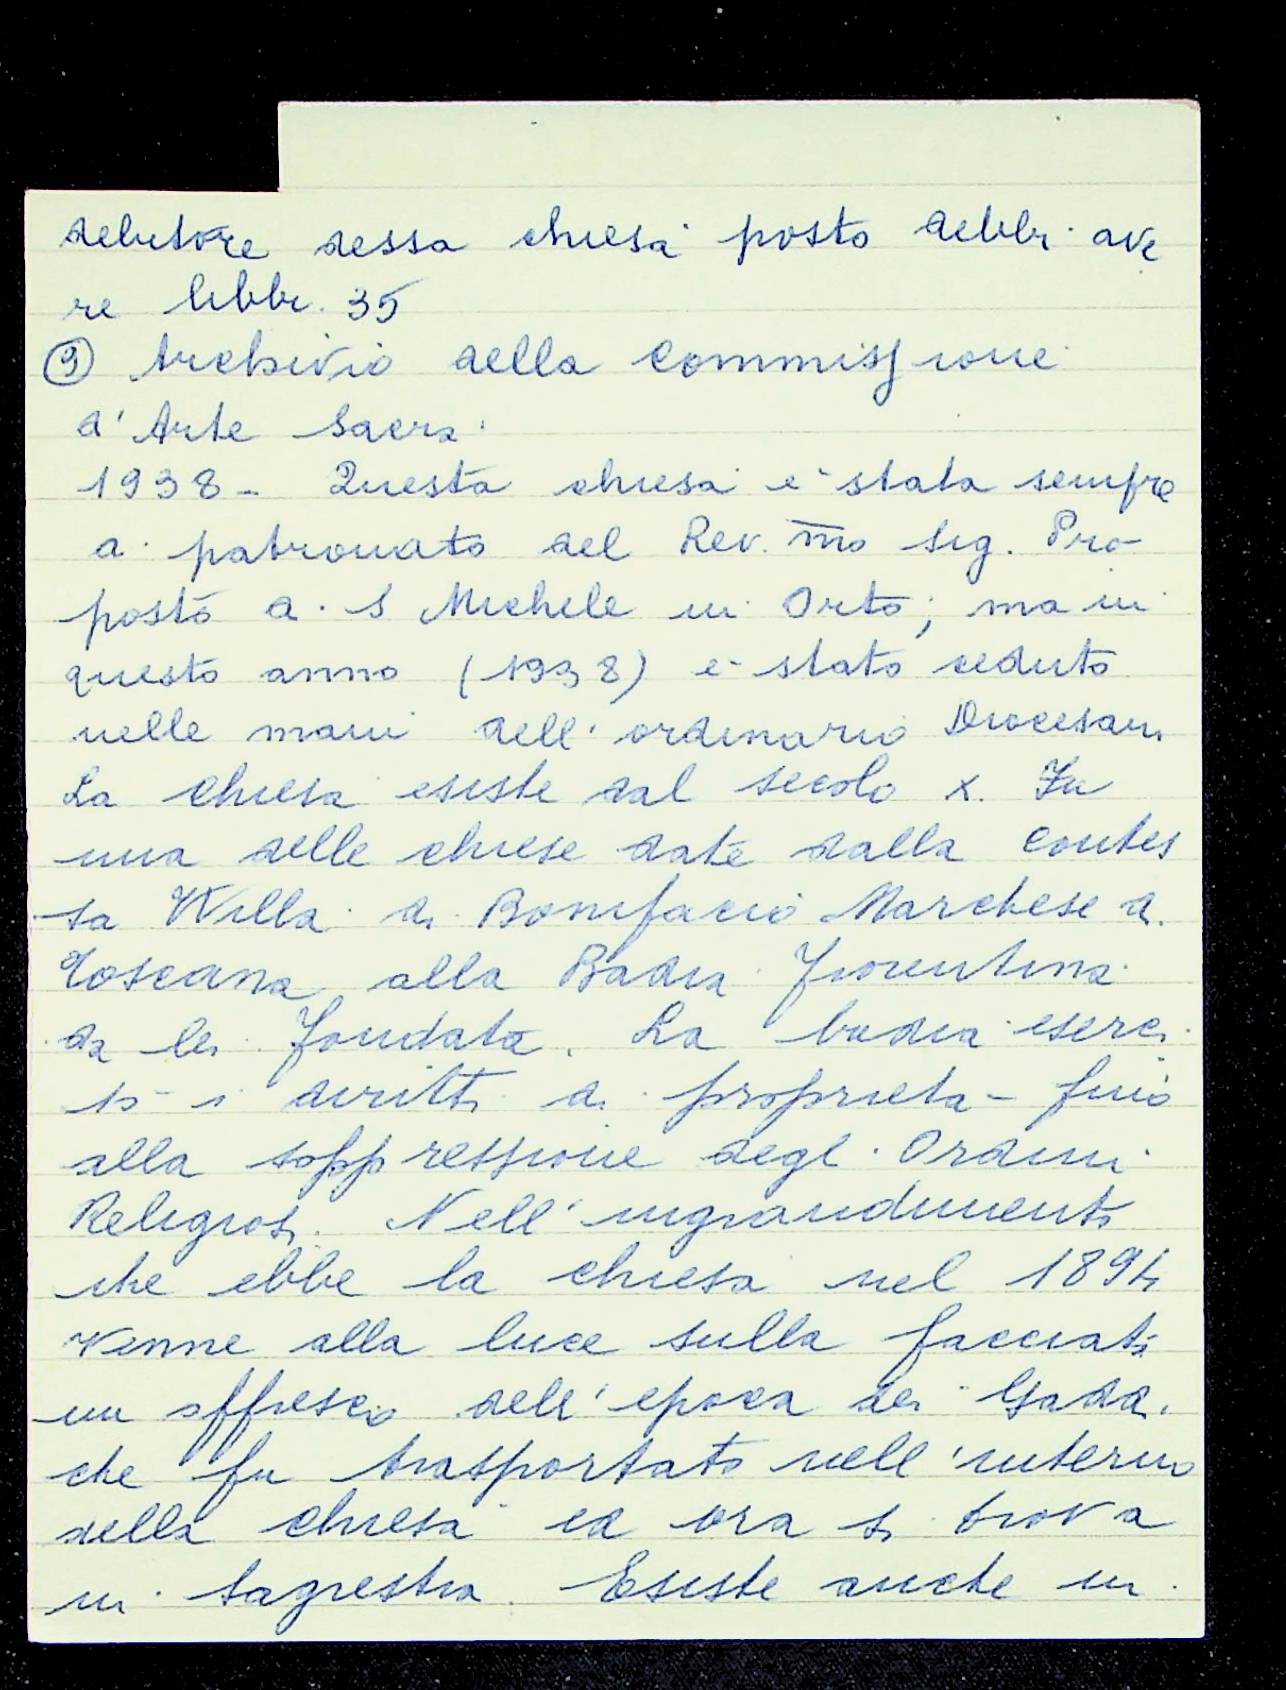 debitore dessa chiesa posto debbi ave
re libbr. 35
⑨ Archivio della Commissione
d'Arte Sacra.
1938 - Questa chiesa è stata sempre
a patronato del Rev. m̅o̅ Sig. Pro-
posto a S Michele in Orto; ma in
questo anno (1938) è stato ceduto
nelle mani dell'ordinario Diocesan.
La Chiesa esiste dal secolo X. Fu
una delle chiese date dalla Contes
sa Willa di Bonifacio Marchese di
Toscana alla Badia Fiorentina
da lei fondata. La badia eserci
tò i diritti di proprietà fino
alla soppressione degli Ordini
Religiosi. Nell'ingrandimento
che ebbe la chiesa nel 1894
venne alla luce sulla facciata
un affresco dell'epoca dei Gaddi
che fu trasportato nell'interno
della chiesa ed ora si trova
in Sagrestia. Esiste anche in